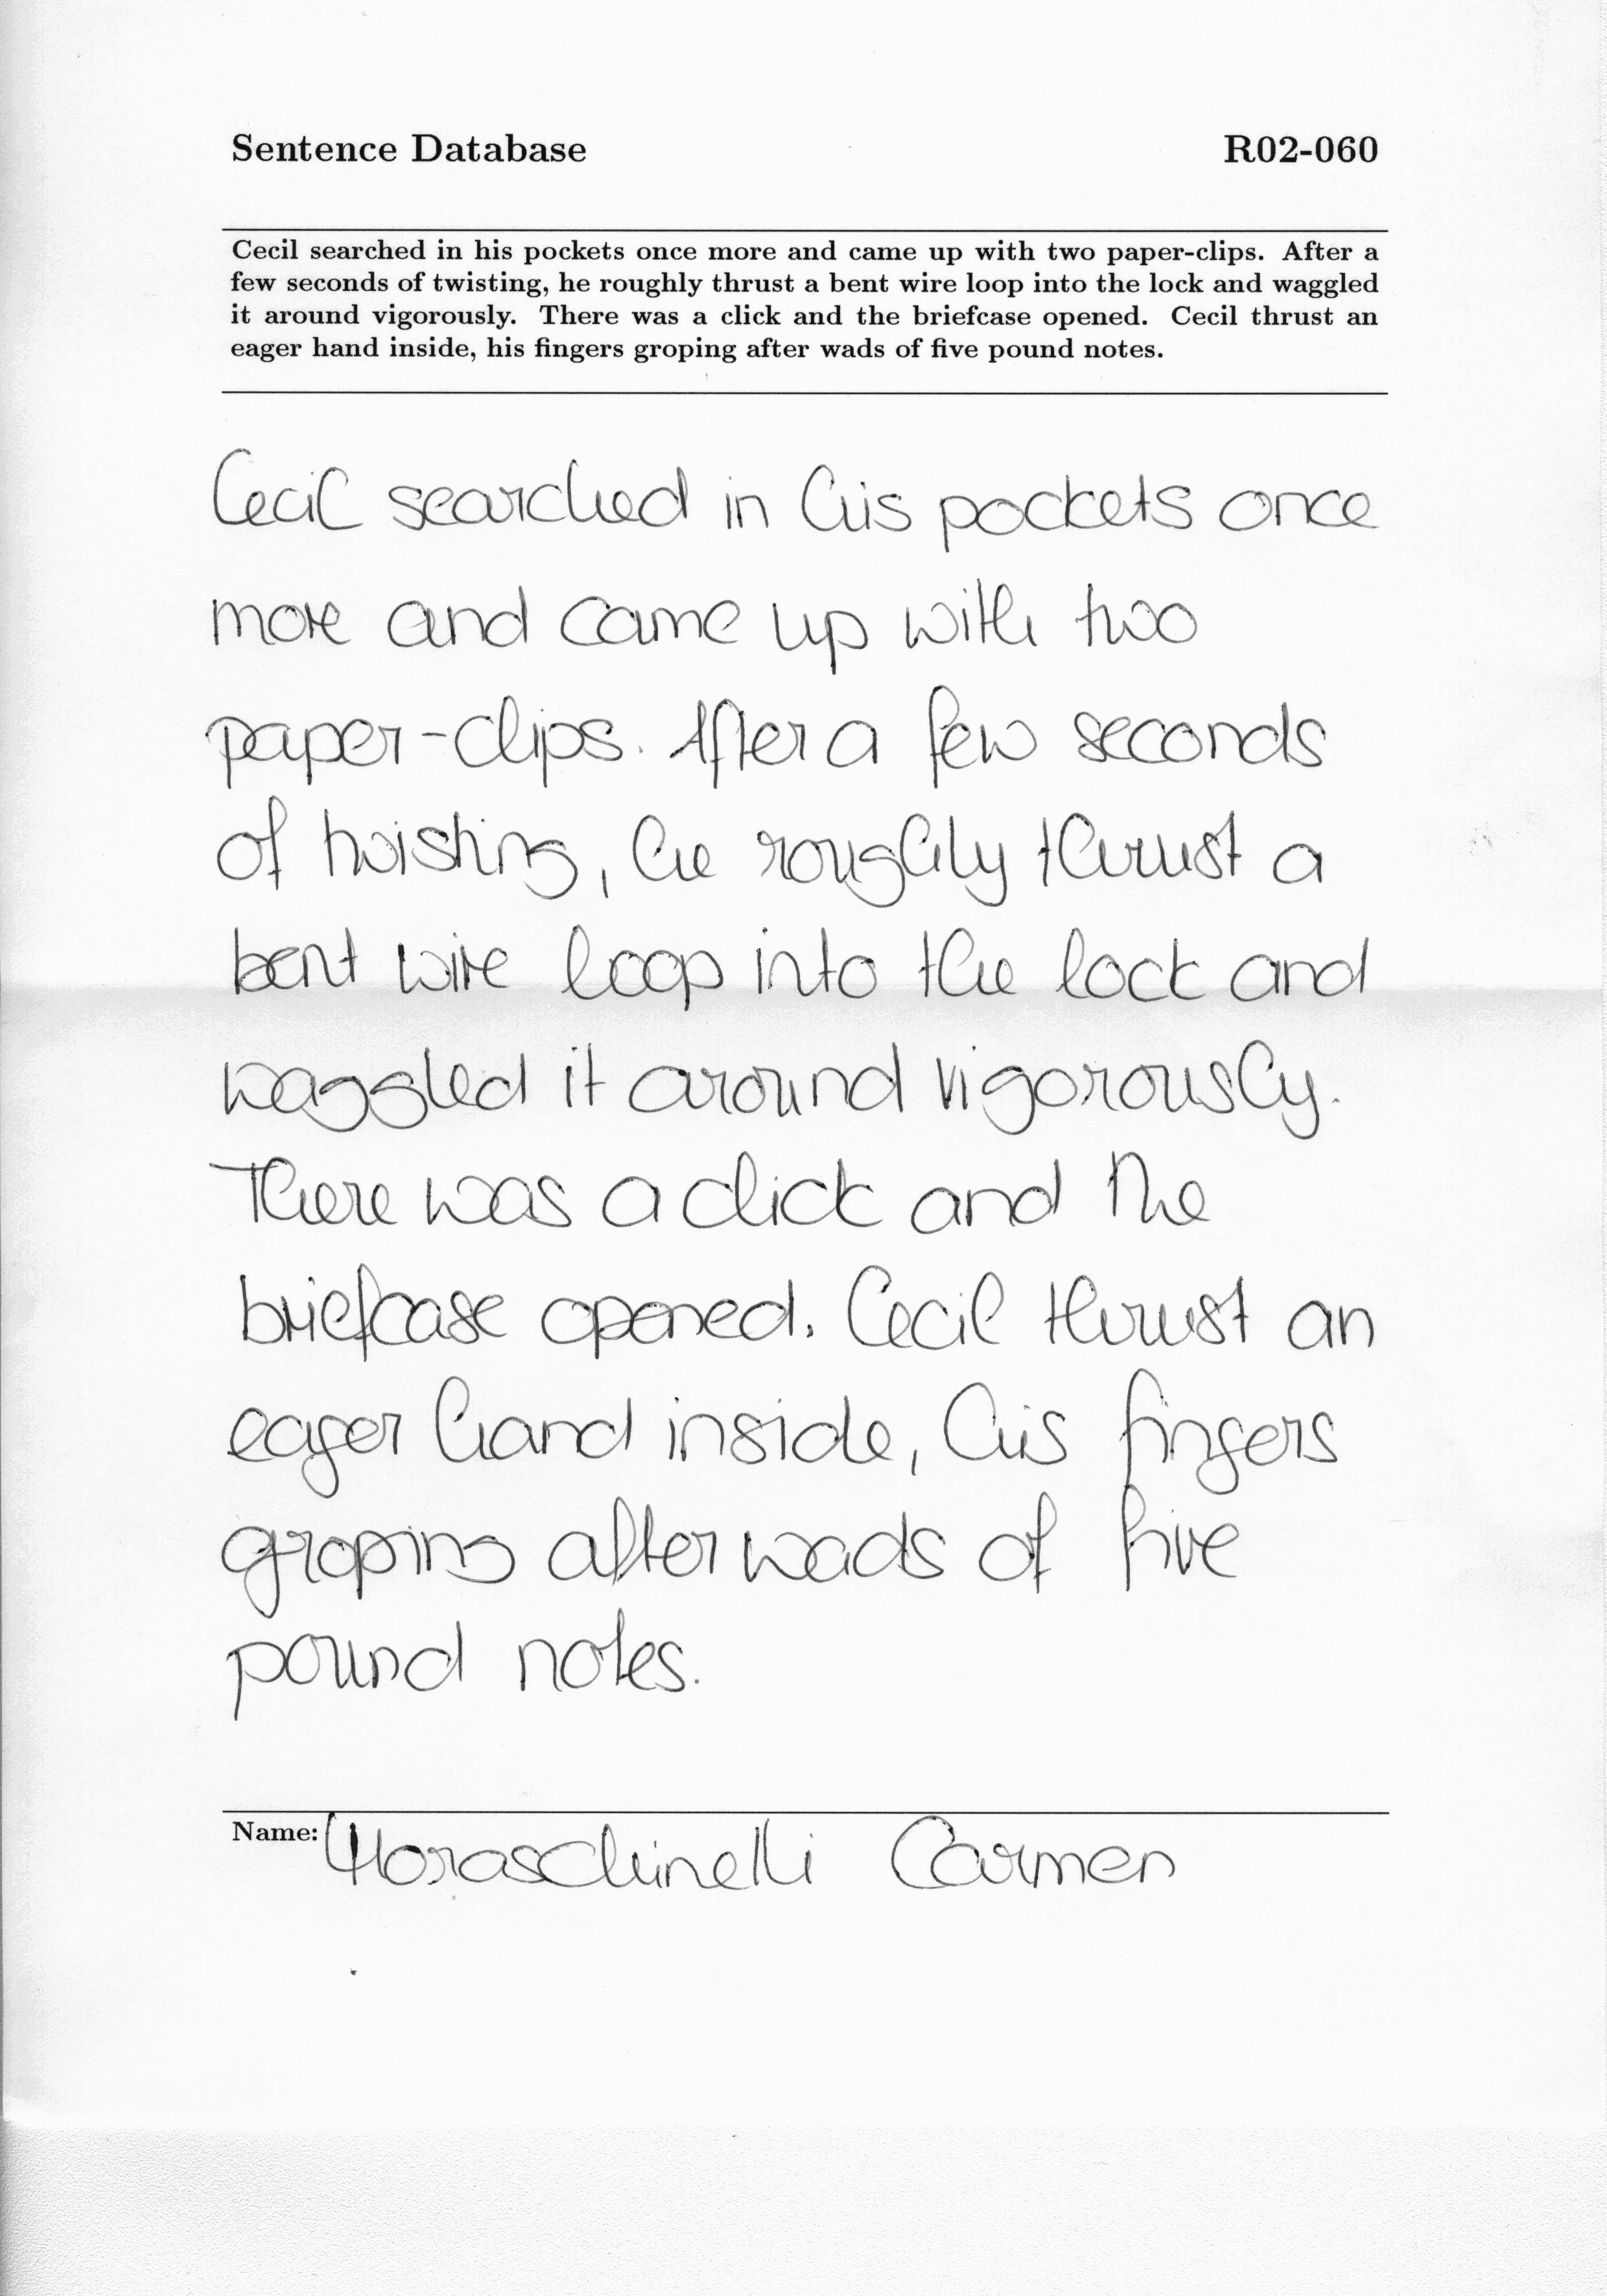 Sentence Database R02-060
Cecil searched in his pockets once more and came up with two paper-clips. After a
few seconds of twisting, he roughly thrust a bent wire loop into the lock and waggled
it around vigorously. There was a click and the briefcase opened. Cecil thrust an
eager hand inside, his fingers groping after wads of five pound notes.
Cecil searched in his pockets once
more and came up with two
paper-clips. After a few seconds
of twisting, he roughly thrust a
bent wire loop into the lock and
waggled it around vigorously.
There was a click and the
briefcase opened. Cecil thrust an
eager hand inside, his fingers
groping after wads of five
pound notes.
Name: Moraschinelli Carmen